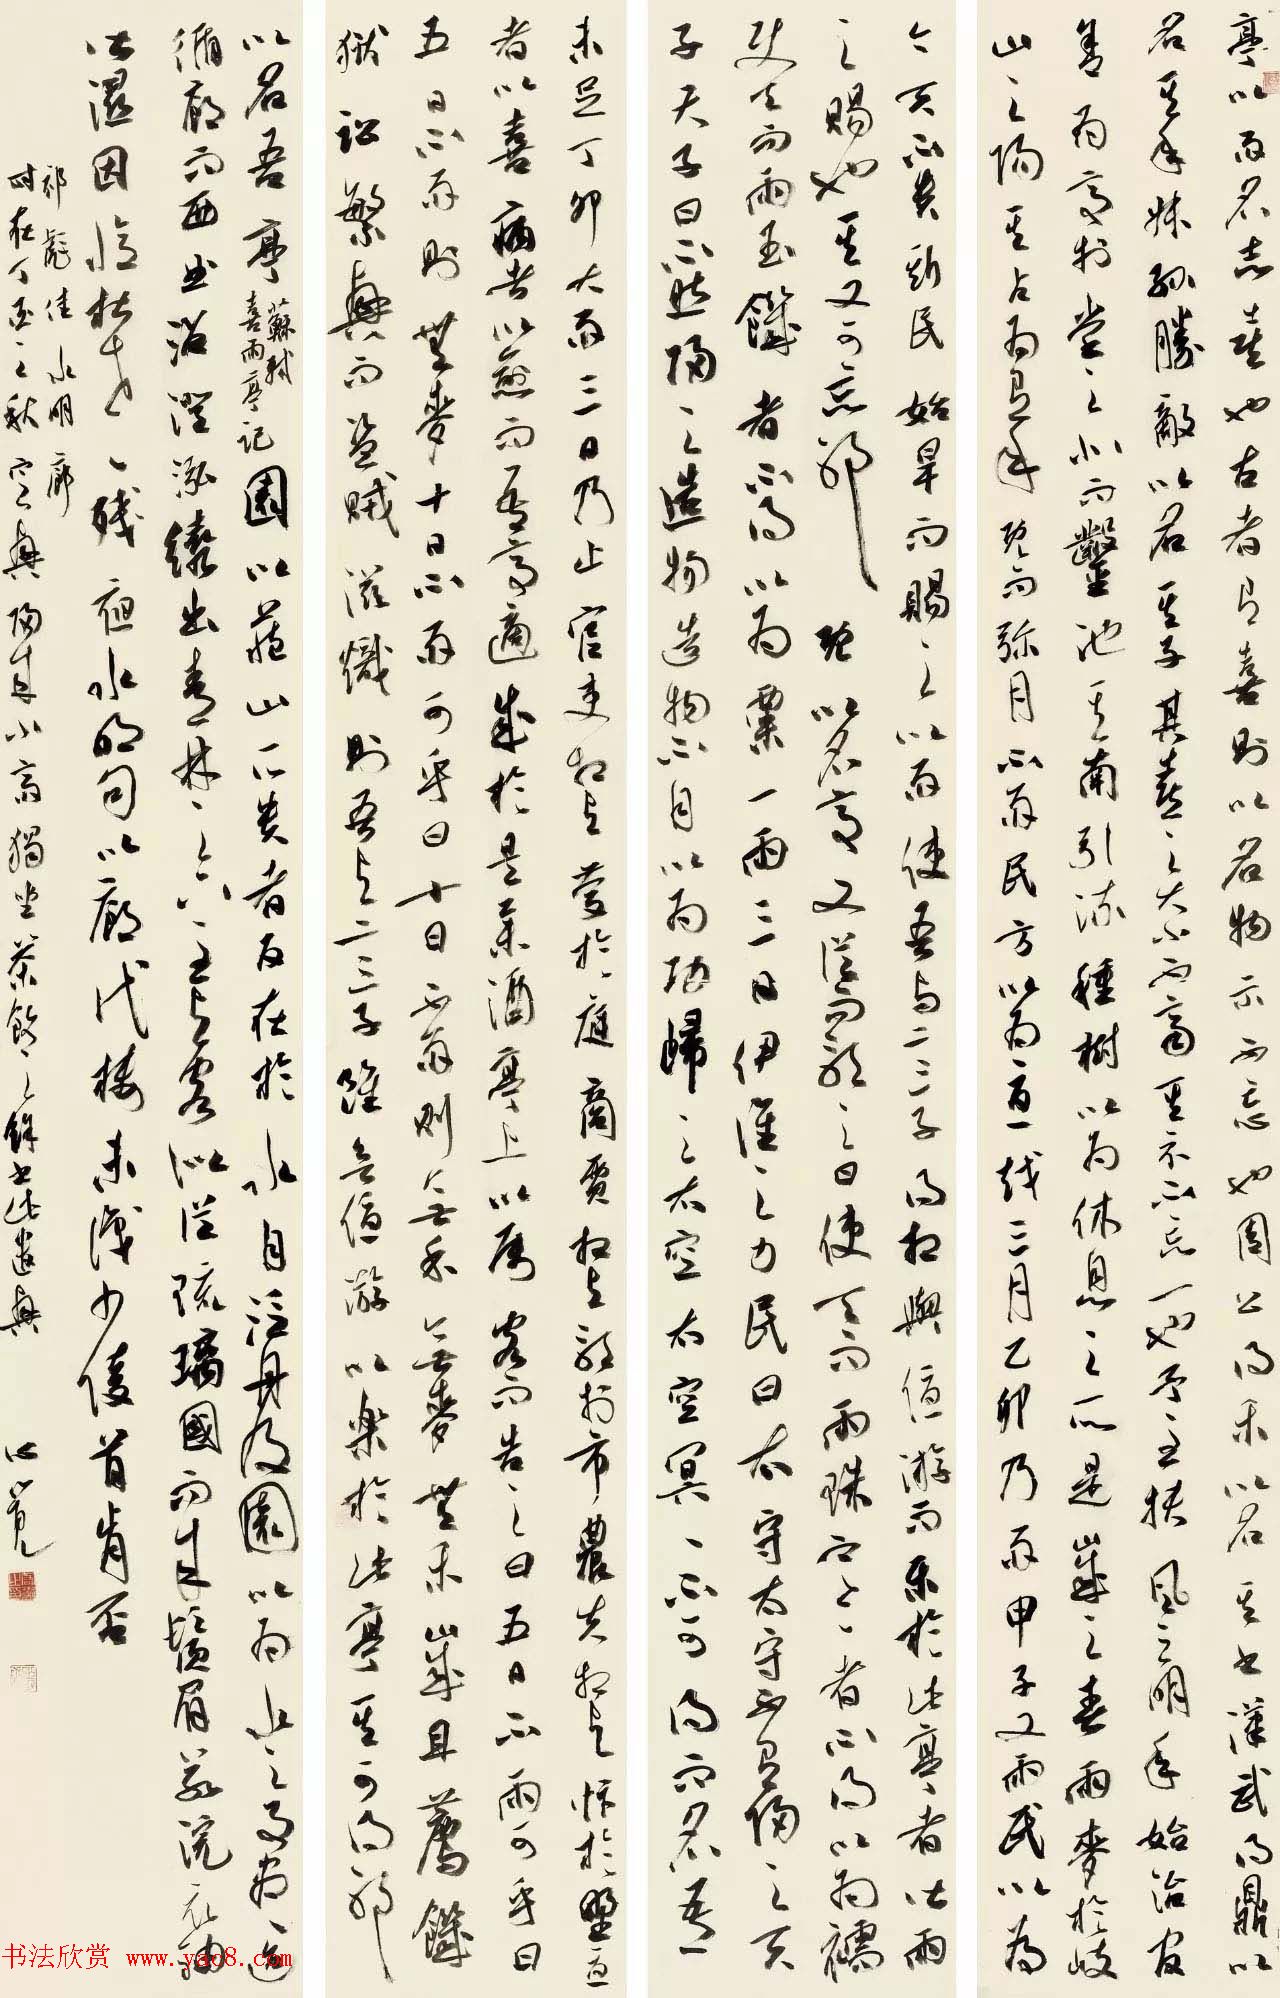 亭以雨名志喜也古者有喜則以名物示不忘也周公得禾以名其書漢武得鼎以
名其年叔孫勝敵以名其子其喜之大小不齊其示不忘一也予至扶風之明年始治官
舍為亭於堂之北而鑿池其南引流種樹以為休息之所是歲之春雨麥於岐
山之陽其占為有年既而彌月不雨民方以為憂越三月乙卯乃雨甲子又雨民以為
今天不遺斯民始旱而賜之以雨使吾與二三子得相與優游而樂於此亭者皆雨
之賜也其又可忘耶既以名亭又從而歌之曰使天而雨珠寒者不得以為襦
使天而雨玉饑者不得以為粟一雨三日伊誰之力民曰太守太守不有歸之天
子天子曰不然歸之造物造物不自以為功歸之太空太空冥冥不可得而名吾
未足丁卯大雨三日乃止官吏相與慶於庭商賈相與歌於市農夫相與忭於野憂
者以喜病者以愈而吾亭適成於是舉酒亭上以屬客而告之曰五日不雨可乎曰
五日不雨則無麥十日不雨可乎曰十日不雨則無禾無麥無禾歲且薦饑
獄訟繁興而盜賊滋熾則吾與二三子雖欲優游以樂於此亭其可得耶
以名吾亭蘇軾喜雨亭記園以藏山所貴者反在於水自泛舟及園以為水之事盡迨
循廊而西曲沼澄泓繞出青林之下主與客似從琉璃國而來鬚眉若浣衣袖
皆濕因憶杜老殘夜水明句以廊代樓未識少陵首肯否
祁彪佳水明廊
時在丁酉之秋宜興小齋獨坐茶飲之餘書此遣興
书法欣赏 www.yac8.com